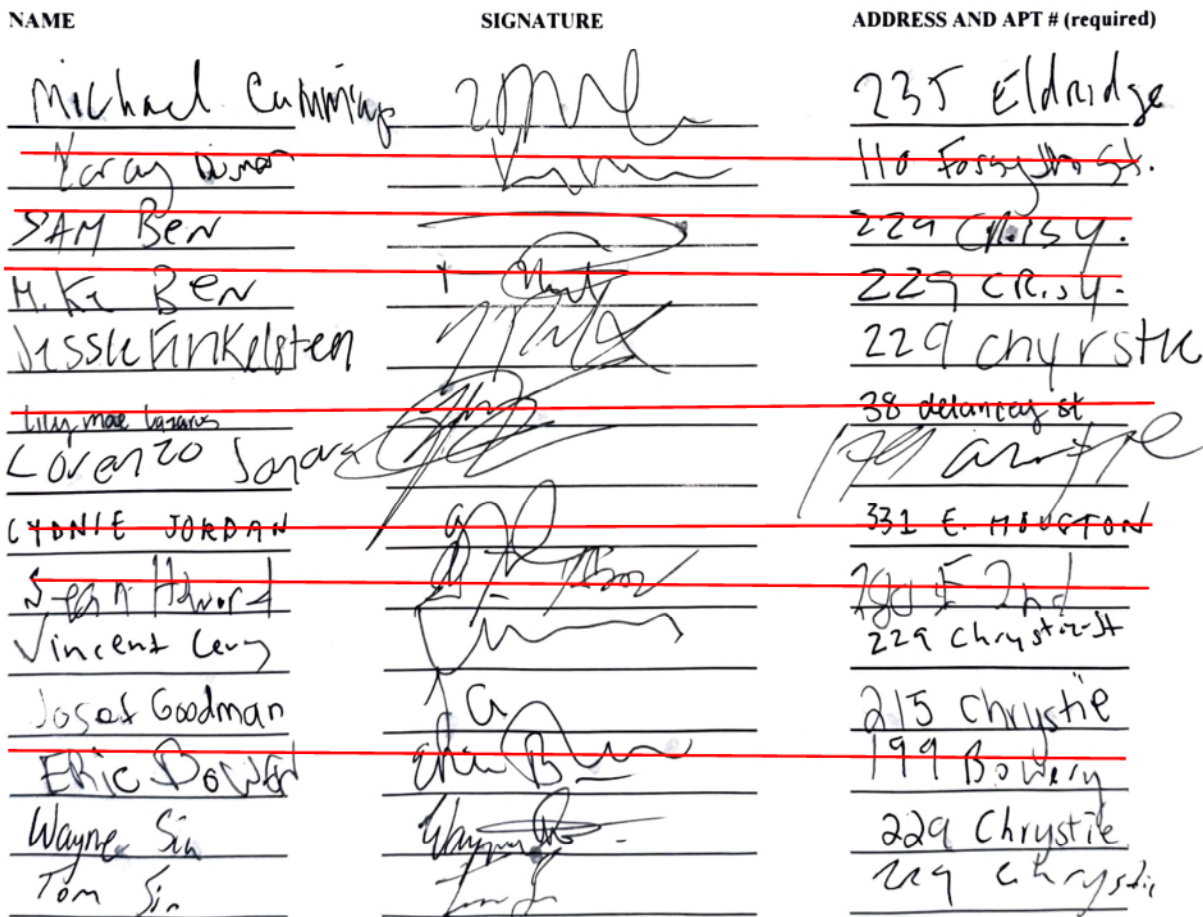 NAME SIGNATURE ADDRESS AND APT # (required)
Michael Cummings 235 Eldridge
110 Forsyth St.
SAM BEN 229 CRISY.
MIKE BEN 229 CRISY.
Jessie Finkelsten 229 chyrstie
Lily mae Lazarus 38 delancey st
Lorenzo
CYDNIE JORDAN 331 E. HOUSTON
Sean Howard 280 E 2nd
Vincent Levy 229 Chrystie St
Josef Goodman 215 Chrystie
ERIC BOWEN 199 Bowery
Wayne Sin 229 Chrystie
Tom Sin 229 Chrystie